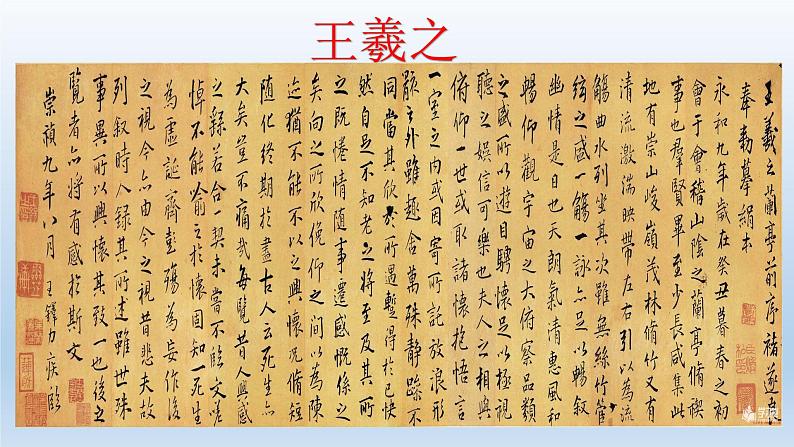 王羲之
王羲之蘭亭前序褚遂良
奉勅摹絹本
永和九年歲在癸丑暮春之初
會于會稽山陰之蘭亭脩禊
事也羣賢畢至少長咸集此
地有崇山峻嶺茂林脩竹又有
清流激湍映帶左右引以為流
觴曲水列坐其次雖無絲竹管
弦之盛一觴一詠亦足以暢叙
幽情是日也天朗氣清惠風和
暢仰觀宇宙之大俯察品類
之盛所以遊目騁懷足以極視
聽之娛信可樂也夫人之相與
俯仰一世或取諸懷抱悟言
一室之内或因寄所託放浪形
骸之外雖趣舍萬殊静躁不
同當其欣於所遇暫得於己快
然自足不知老之將至及其所
之既惓情隨事遷感慨係之
矣向之所欣俛仰之間以為陳
迹猶不能不以之興懷況脩短
隨化終期於盡古人云死生亦
大矣豈不痛哉每覽昔人興感
之緣若合一契未嘗不臨文嗟
悼不能喻之於懷固知一死生
為虛誕齊彭殤為妄作後
之視今亦由今之視昔悲夫故
列叙時人録其所述雖世殊
事異所以興懷其致一也後之
覽者亦將有感於斯文
崇禎九年八月 王鐸力疾臨